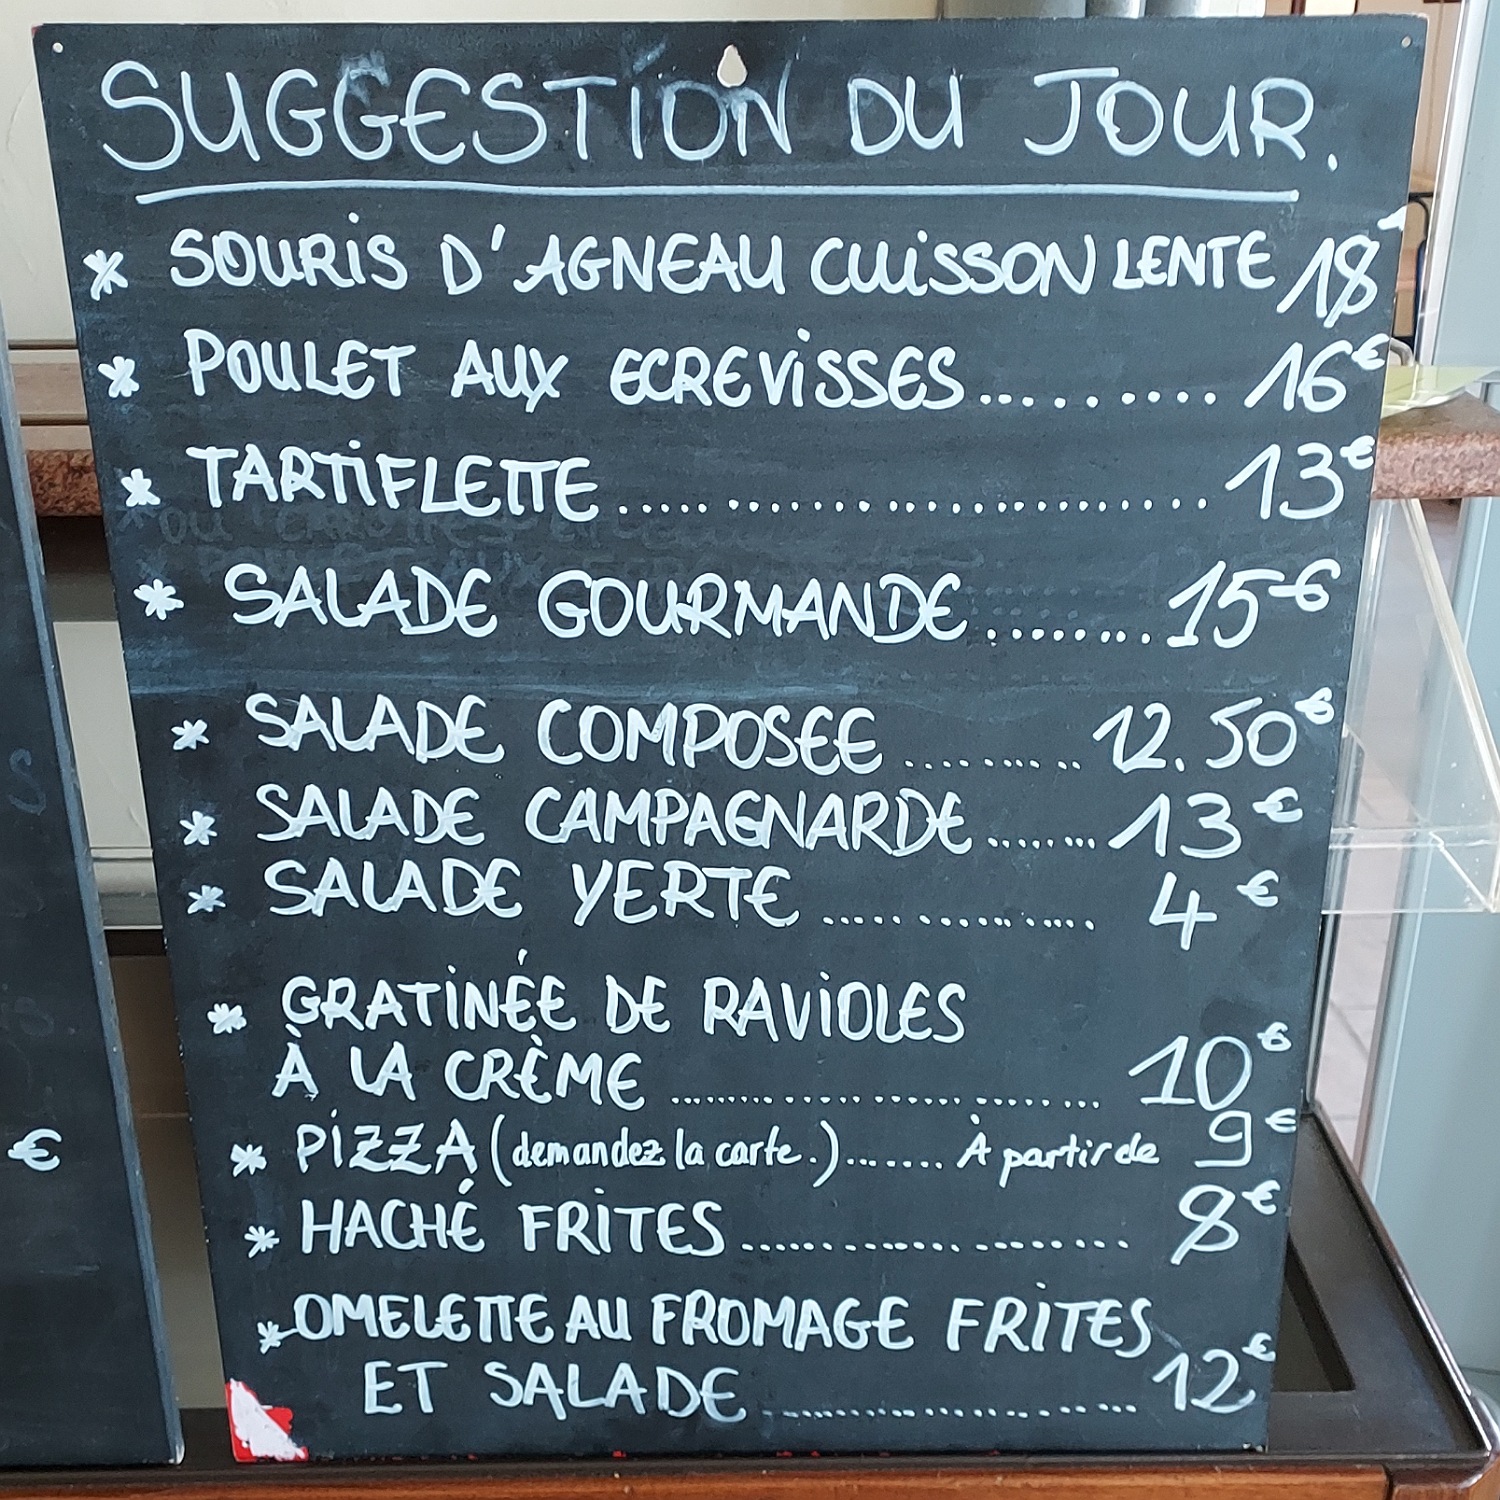 SUGGESTION DU JOUR.
* SOURIS D'AGNEAU CUISSON LENTE 18
* POULET AUX ECREVISSES.......... 16€
* TARTIFLETTE......................... 13€
* SALADE GOURMANDE........ 15€
* SALADE COMPOSEE ......... 12.50€
* SALADE CAMPAGNARDE....... 13€
* SALADE VERTE ............... 4€
* GRATINÉE DE RAVIOLES
À LA CRÈME ........................ 10€
* PIZZA (demandez la carte.)....... À partir de 9€
* HACHÉ FRITES...................... 8€
* OMELETTE AU FROMAGE FRITES
ET SALADE ..................... 12€
€